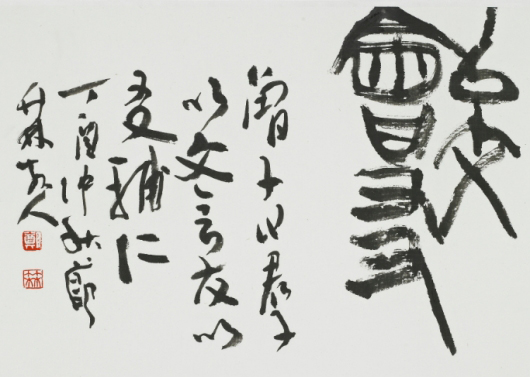 會友
曾子曰君子
以文會友以
友輔仁
丁酉仲秋
人